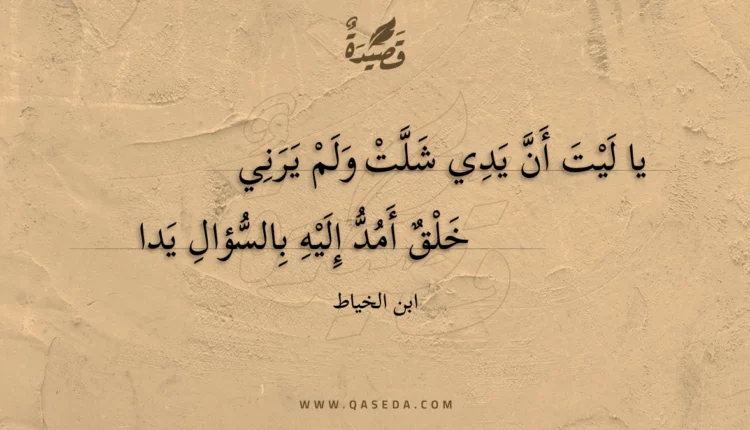 قَصِيدَةٌ
يا لَيْتَ أَنَّ يَدِي شَلَّتْ وَلَمْ يَرَنِي
خَلْقٌ أَمُدُّ إِلَيْهِ بِالسُّؤالِ يَدا
ابن الخياط
WWW.QASEDA.COM